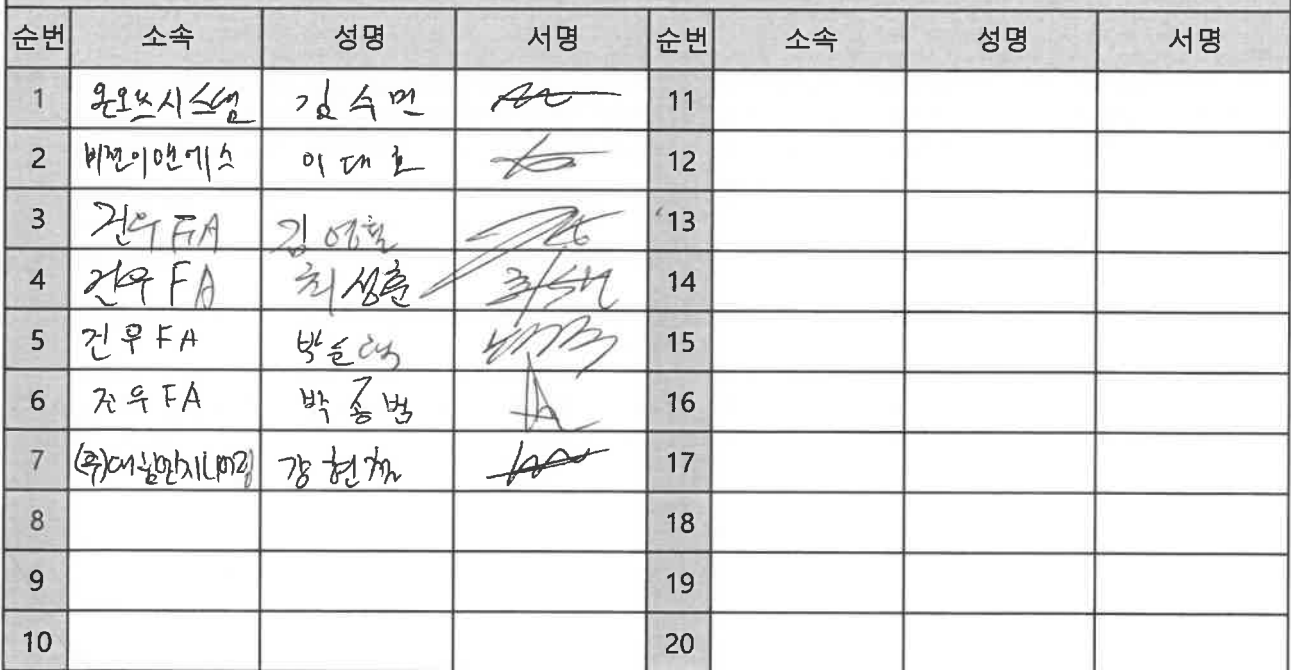 순번 소속 성명 서명 순번 소속 성명 서명
1 온오쓰시스템 김수먼 11
2 비젼이앤에스 이대호 12
3 건우FA 김영철 13
4 건우FA 최성훈 14
5 건우FA 박순택 15
6 건우FA 박종범 16
7 (주)대힘엔지니어링 강현철 17
8 18
9 19
10 20